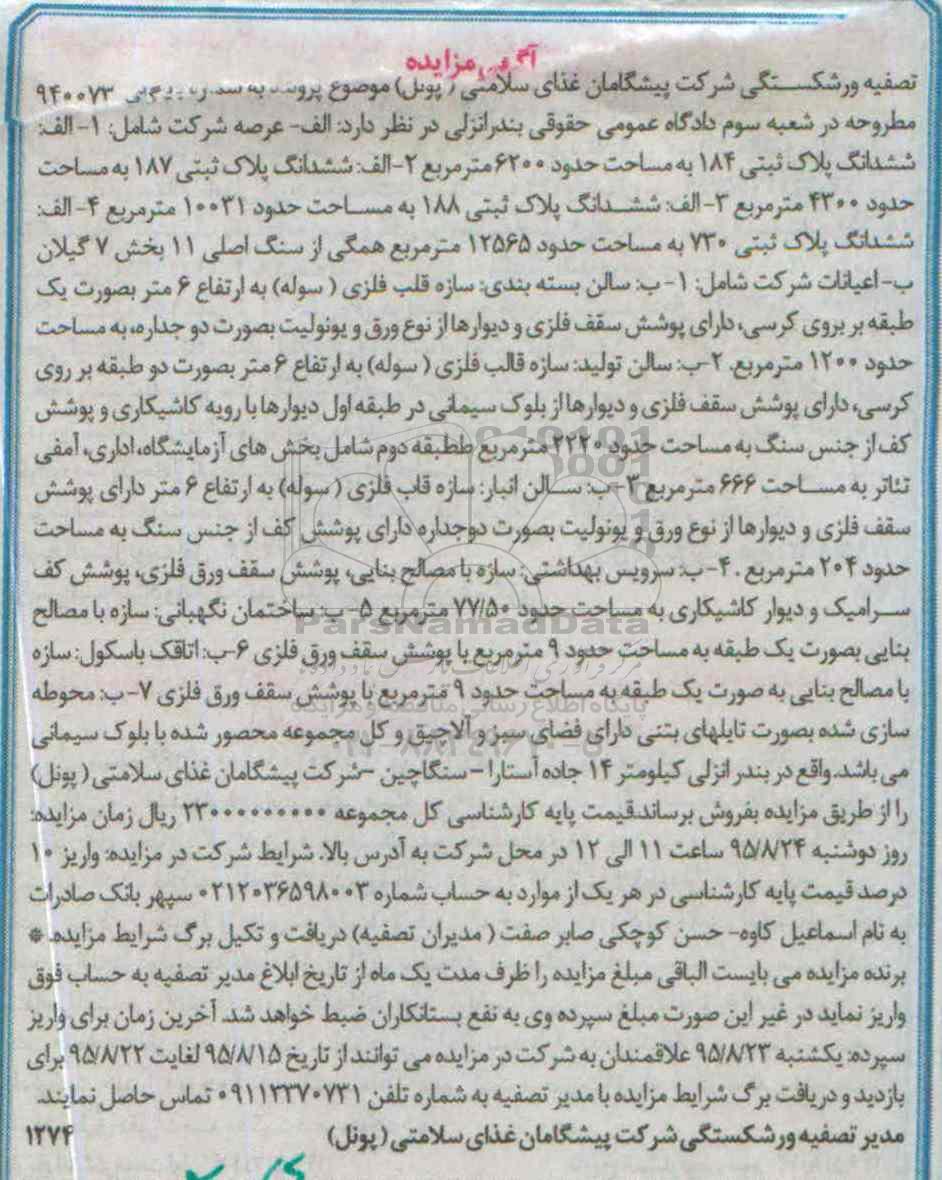 آگهی مزایده
تصفیه ورشکستگی شرکت پیشگامان غذای سلامتی ( پونل) موضوع پرونده به ۹۴۰۰۷۳
مطروحه در شعبه سوم دادگاه عمومی حقوقی بندرانزلی در نظر دارد: الف- عرصه شرکت شامل: ۱- الف:
ششدانگ پلاک ثبتی ۱۸۴ به مساحت حدود ۶۲۰۰ مترمربع ۲-الف: ششدانگ پلاک ثبتی ۱۸۷ به مساحت
حدود ۴۳۰۰ مترمربع ۳- الف: ششدانگ پلاک ثبتی ۱۸۸ به مساحت حدود ۱۰۰۳۱ مترمربع ۴- الف:
ششدانگ پلاک ثبتی ۷۳۰ به مساحت حدود ۱۲۵۶۵ مترمربع همگی از سنگ اصلی ۱۱ بخش ۷ گیلان
ب- اعیانات شرکت شامل: ۱- ب: سالن بسته بندی: سازه قلب فلزی ( سوله) به ارتفاع ۶ متر بصورت یک
طبقه بر روی کرسی، دارای پوشش سقف فلزی و دیوارها از نوع ورق و یونولیت بصورت دو جداره، به مساحت
حدود ۱۲۰۰ مترمربع. ۲-ب: سالن تولید: سازه قالب فلزی ( سوله) به ارتفاع ۶ متر بصورت دو طبقه بر روی
کرسی، دارای پوشش سقف فلزی و دیوارها از بلوک سیمانی در طبقه اول دیوارها با رویه کاشیکاری و پوشش
کف از جنس سنگ به مساحت حدود ۲۲۲۰ مترمربع ططبقه دوم شامل بخش های آزمایشگاه، اداری، آمفی
تئاتر به مساحت ۶۶۶ مترمربع ۳-ب: سالن انبار: سازه قاب فلزی ( سوله) به ارتفاع ۶ متر دارای پوشش
سقف فلزی و دیوارها از نوع ورق و یونولیت بصورت دوجداره دارای پوشش کف از جنس سنگ به مساحت
حدود ۲۰۴ مترمربع . ۴- ب: سرویس بهداشتی: سازه با مصالح بنایی، پوشش سقف ورق فلزی، پوشش کف
سرامیک و دیوار کاشیکاری به مساحت حدود ۷۷/۵۰ مترمربع ۵- ب: ساختمان نگهبانی: سازه با مصالح
ParsNamadData
بنایی بصورت یک طبقه به مساحت حدود ۹ مترمربع با پوشش سقف ورق فلزی ۶-ب: اتاقک باسکول: سازه
با مصالح بنایی به صورت یک طبقه به مساحت حدود ۹ مترمربع با پوشش سقف ورق فلزی ۷- ب: محوطه
پایگاه اطلاع رسانی مناقصه و مزایده
سازی شده بصورت تایلهای بتنی دارای فضای سبز و آلاچیق و کل مجموعه محصور شده با بلوک سیمانی
می باشد. واقع در بندر انزلی کیلومتر ۱۴ جاده آستارا – سنگاچین –شرکت پیشگامان غذای سلامتی ( پونل)
را از طریق مزایده بفروش برساند.قیمت پایه کارشناسی کل مجموعه ۲۳۰۰۰۰۰۰۰۰۰ ریال زمان مزایده:
روز دوشنبه ۹۵/۸/۲۴ ساعت ۱۱ الی ۱۲ در محل شرکت به آدرس بالا. شرایط شرکت در مزایده: واریز ۱۰
درصد قیمت پایه کارشناسی در هر یک از موارد به حساب شماره ۰۲۱۲۰۳۶۵۹۸۰۰۳ سپهر بانک صادرات
به نام اسماعیل کاوه- حسن کوچکی صابر صفت ( مدیران تصفیه) دریافت و تکیل برگ شرایط مزایده. *
برنده مزایده می بایست الباقی مبلغ مزایده را ظرف مدت یک ماه از تاریخ ابلاغ مدیر تصفیه به حساب فوق
واریز نماید در غیر این صورت مبلغ سپرده وی به نفع بستانکاران ضبط خواهد شد. آخرین زمان برای واریز
سپرده: یکشنبه ۹۵/۸/۲۳ علاقمندان به شرکت در مزایده می توانند از تاریخ ۹۵/۸/۱۵ لغایت ۹۵/۸/۲۲ برای
بازدید و دریافت برگ شرایط مزایده با مدیر تصفیه به شماره تلفن ۰۹۱۱۳۳۷۰۷۳۱ تماس حاصل نمایند.
مدیر تصفیه ورشکستگی شرکت پیشگامان غذای سلامتی ( پونل) ۱۲۷۴